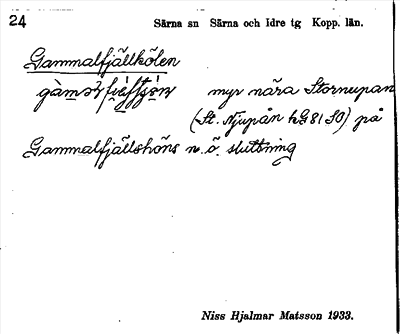 24 Särna sn Särna och Idre tg Kopp. län.
Gammalfjällkölen
myr nära Stornupan
(St. Njupån hG81 SO) på
Gammalfjällshöns n. ö. sluttning
Niss Hjalmar Matsson 1933.